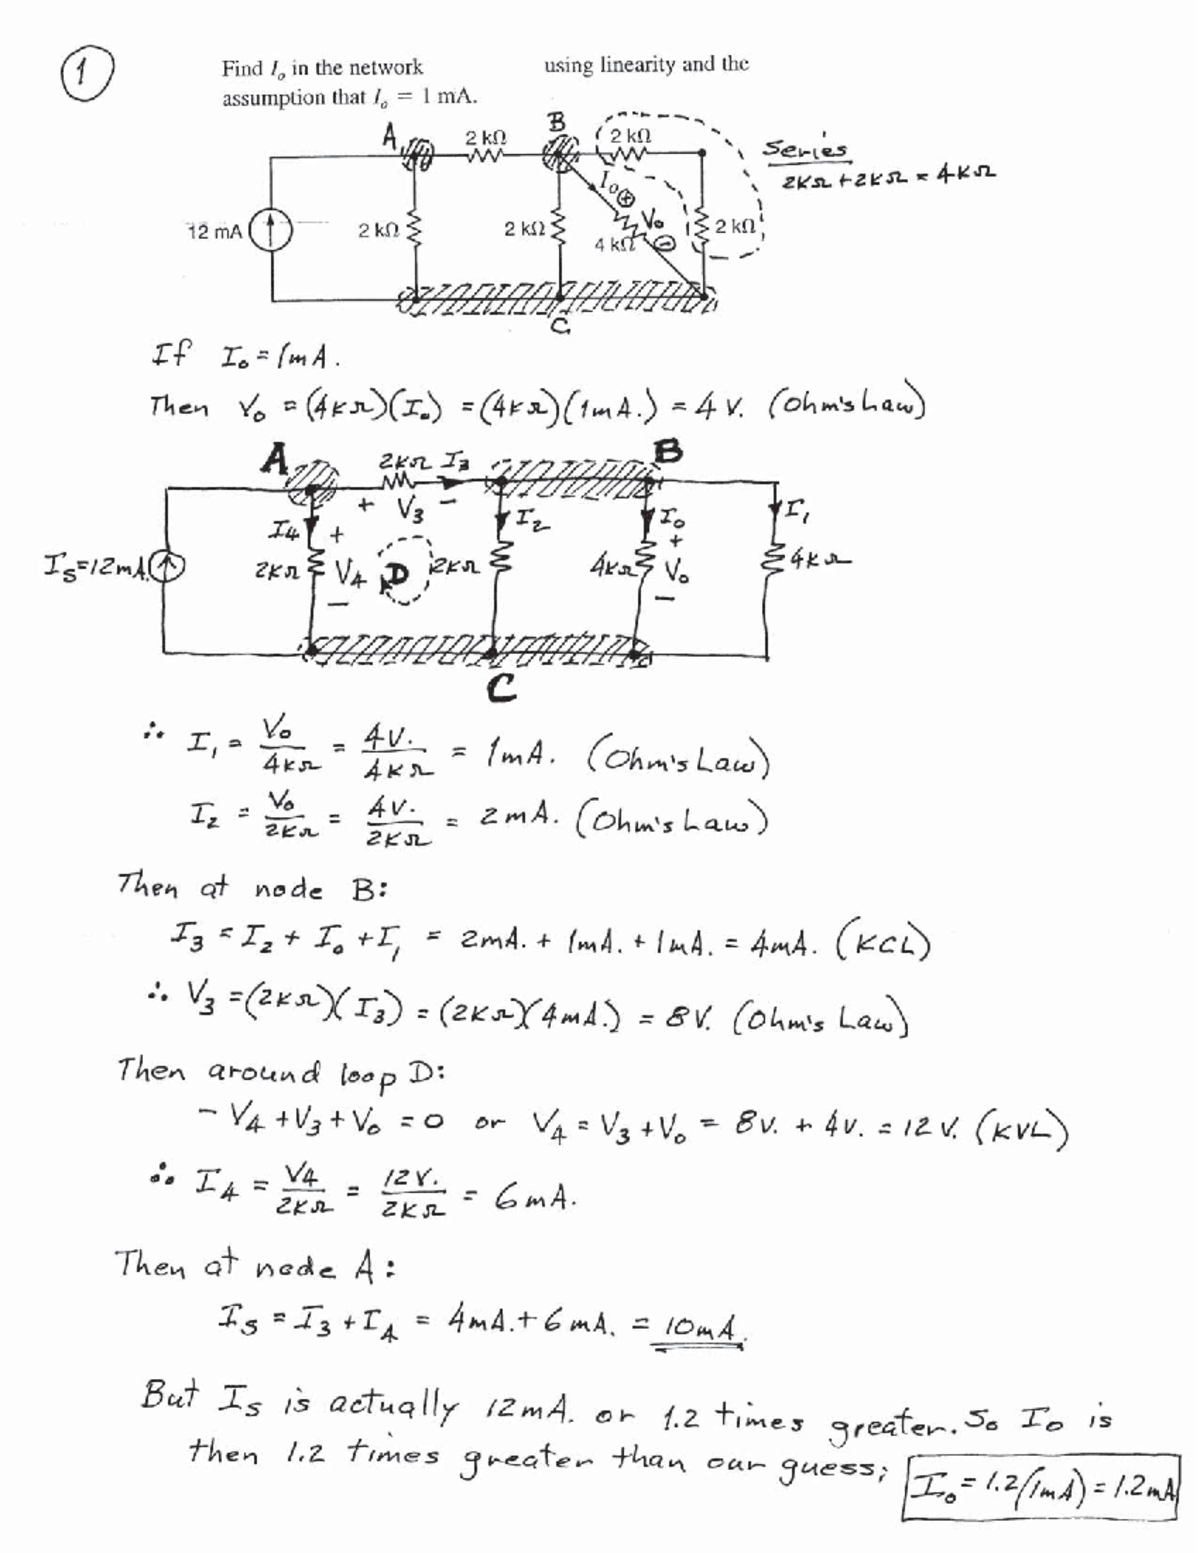 1
Find I₀ in the network using linearity and the
assumption that I₀ = 1 mA.
A 2 kΩ B 2 kΩ Series
2KΩ + 2KΩ = 4KΩ
I₀ + V₀ −
12 mA 2 kΩ 2 kΩ 4 kΩ 2 kΩ
C
If I₀ = 1mA.
Then V₀ = (4KΩ)(I₀) = (4KΩ)(1mA.) = 4 V. (Ohm's Law)
A 2KΩ I₃ B
+ V₃ − I₂ I₀ I₁
I₄ + +
Is=12mA. 2KΩ V₄ D 2KΩ 4KΩ V₀ 4KΩ
− −
C
∴ I₁ = V₀/4KΩ = 4V./4KΩ = 1mA. (Ohm's Law)
I₂ = V₀/2KΩ = 4V./2KΩ = 2mA. (Ohm's Law)
Then at node B:
I₃ = I₂ + I₀ + I₁ = 2mA. + 1mA. + 1mA. = 4mA. (KCL)
∴ V₃ = (2KΩ)(I₃) = (2KΩ)(4mA.) = 8V. (Ohm's Law)
Then around loop D:
− V₄ + V₃ + V₀ = 0 or V₄ = V₃ + V₀ = 8V. + 4V. = 12V. (KVL)
∴ I₄ = V₄/2KΩ = 12V./2KΩ = 6mA.
Then at node A:
Is = I₃ + I₄ = 4mA. + 6mA. = 10mA.
But Is is actually 12mA. or 1.2 times greater. So I₀ is
then 1.2 times greater than our guess; I₀ = 1.2(1mA) = 1.2mA